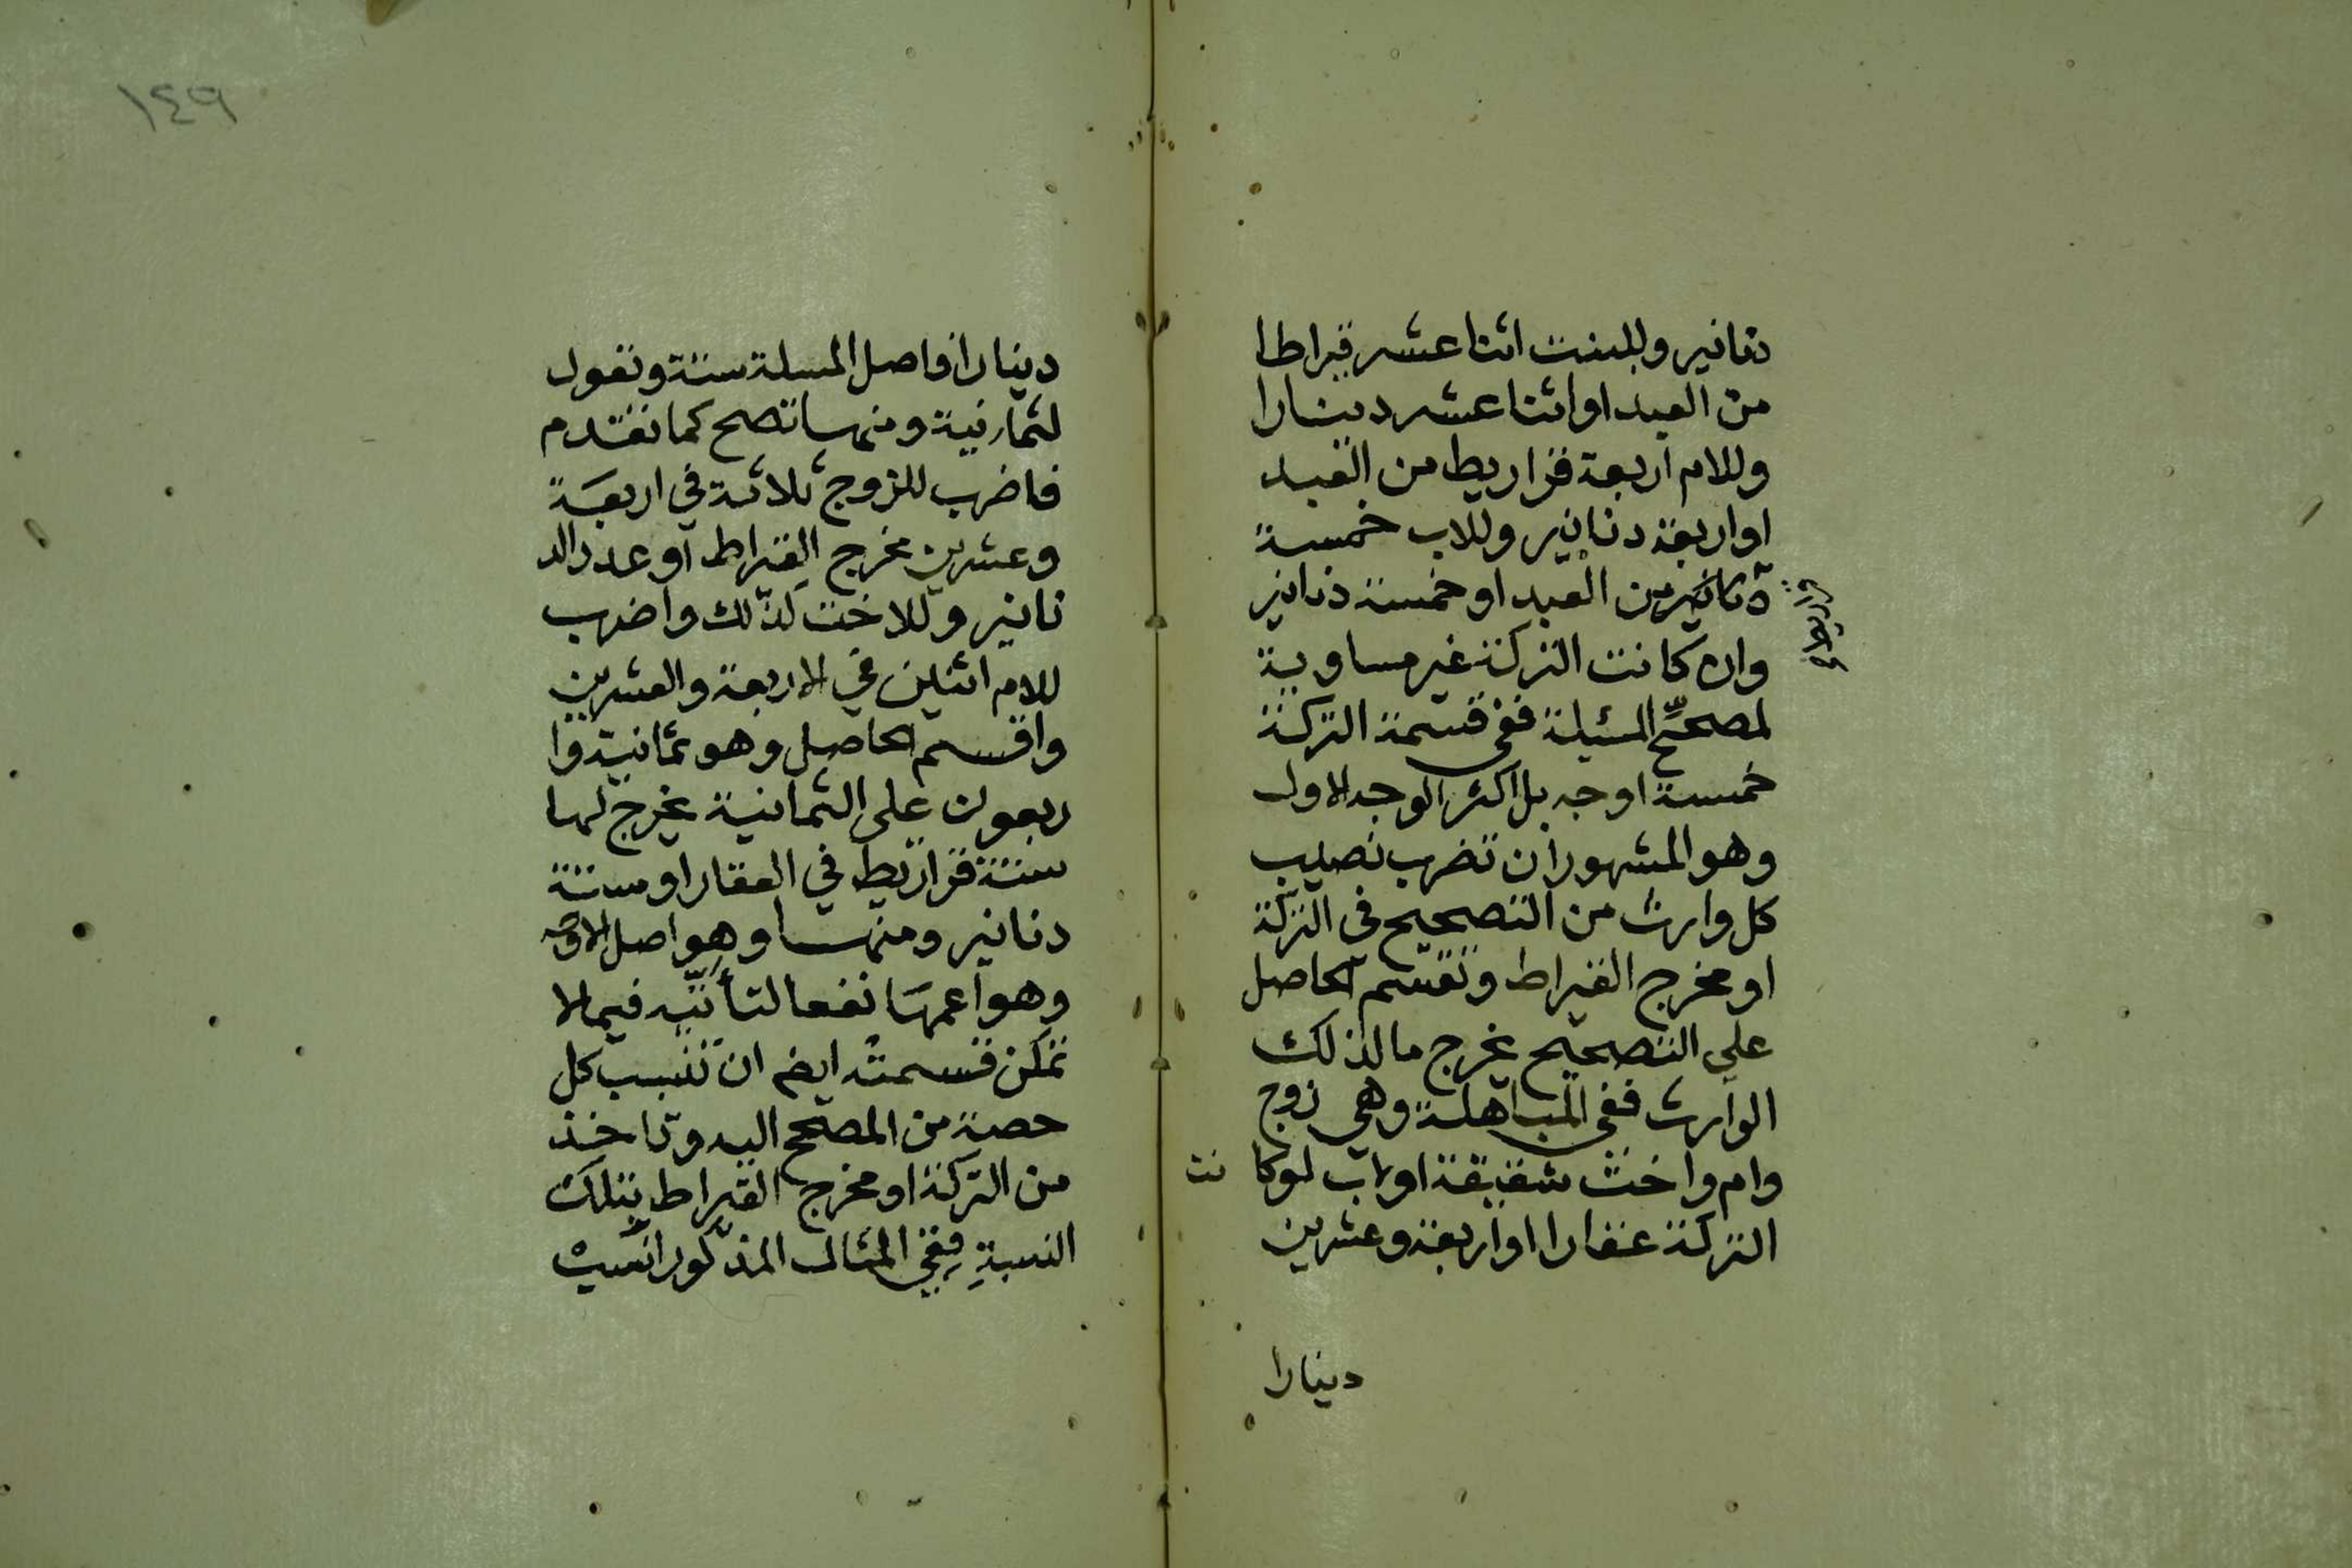 دنانير وللبنت اثنا عشر قيراطا
من العبد او اثنا عشر دينارا
وللام اربعة قراريط من العبد
او اربعة دنانير وللاب خمسة
قراريط
دنانير من العبد او خمسة دنانير
وان كانت التركة غير مساوية
لمصحح المسئلة ففي قسمة التركة
خمسة اوجه بل اكثر الوجه الاول
وهو المشهور ان تضرب نصيب
كل وارث من التصحيح في التركة
او مخرج القيراط وتقسم الحاصل
على التصحيح يخرج ما لذلك
الوارث ففي المباهلة وهي زوج
وام واخت شقيقة او لاب لو كا نت
التركة عقارا او اربعة وعشرين
دينارا
١٤٩
دينارا فاصل المسلة ستة وتعول
لثمانية ومنها تصح كما تقدم
فاضرب للزوج ثلاثة في اربعة
وعشرين مخرج القيراط او عدد الد
نانير وللاخت كذلك واضرب
للام اثنين في الاربعة والعشرين
واقسم الحاصل وهو ثمانية وا
ربعون على الثمانية يخرج لها
ستة قراريط في العقار او ستة
دنانير ومنها وهو اصل الاوجه
وهو اعمها نفعا لتأتيه فيما لا
تمكن قسمته ايضا ان تنسب كل
حصة من المصحح اليه وتاخذ
من التركة او مخرج القيراط بتلك
النسبة ففي المثال المذكور انسب